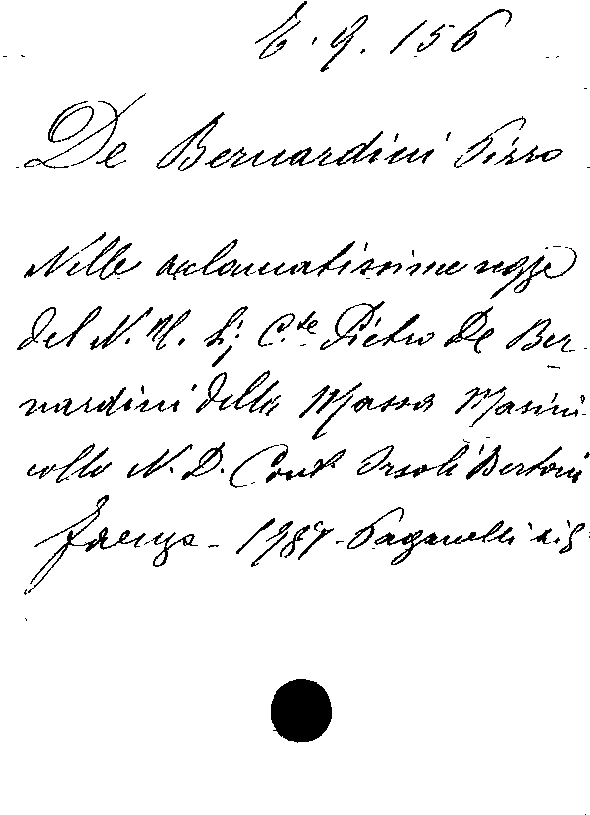 E. 9. 156
De Bernardini Pirro
Nelle acclamatissime nozze
del N. H. Sig. C.te Pietro De Ber-
nardini della Massa Masini
colla N. D. Cont. Orsola Bertoni
Faenza - 1787 - Paganelli